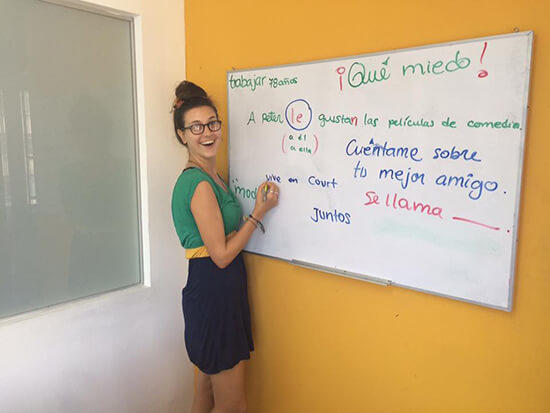 trabajar 78 años
¡Qué miedo!
A peter le gustan las películas de comedia.
(a él
a ella)
Cuéntame sobre
tu mejor amigo.
Se llama ____.
vive en Court
mod
Juntos